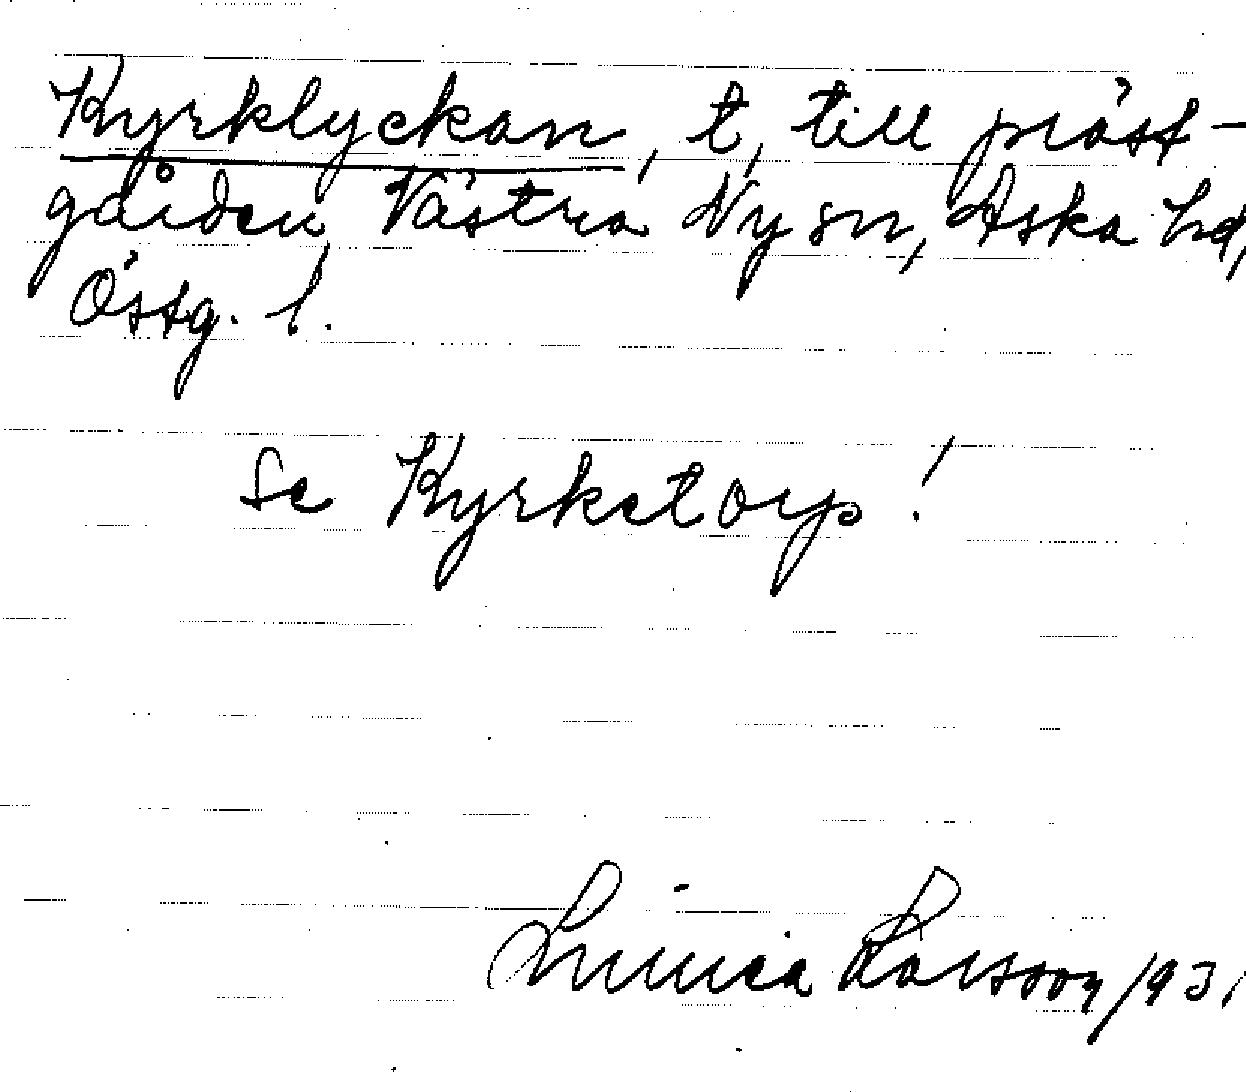 Kyrklyckan, t, till präst-
gården Västra Ny sn, Aska hd,
Östg. l.
Se Kyrketorp!
Linnea Larsson 1931